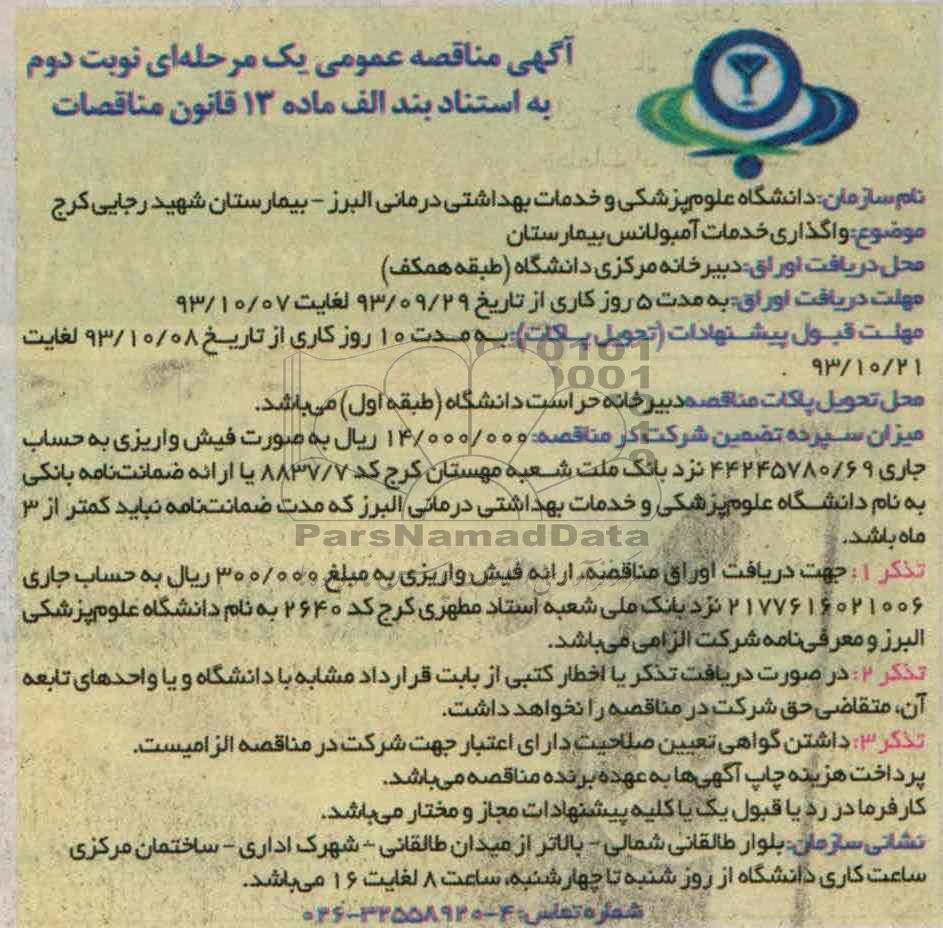 آگهی مناقصه عمومی یک مرحله‌ای نوبت دوم
به استناد بند الف ماده ۱۳ قانون مناقصات
نام سازمان: دانشگاه علوم‌پزشکی و خدمات بهداشتی درمانی البرز – بیمارستان شهید رجایی کرج
موضوع: واگذاری خدمات آمبولانس بیمارستان
محل دریافت اوراق: دبیرخانه مرکزی دانشگاه (طبقه همکف)
مهلت دریافت اوراق: به مدت ۵ روز کاری از تاریخ ۹۳/۰۹/۲۹ لغایت ۹۳/۱۰/۰۷
مهلت قبول پیشنهادات (تحویل پاکات): به مدت ۱۰ روز کاری از تاریخ ۹۳/۱۰/۰۸ لغایت
۹۳/۱۰/۲۱ .
محل تحویل پاکات مناقصه دبیرخانه حراست دانشگاه (طبقه اول) می‌باشد.
میزان سپرده تضمین شرکت در مناقصه: ۱۴/۰۰۰/۰۰۰ ریال به صورت فیش واریزی به حساب
جاری ۴۴۲۴۵۷۸۰/۶۹ نزد بانک ملت شعبه مهستان کرج کد ۸۸۳۷/۷ یا ارائه ضمانت‌نامه بانکی
به نام دانشگاه علوم‌پزشکی و خدمات بهداشتی درمانی البرز که مدت ضمانت‌نامه نباید کمتر از ۳
ماه باشد.
ParsNamadData
تذکر ۱: جهت دریافت اوراق مناقصه، ارائه فیش واریزی به مبلغ ۳۰۰/۰۰۰ ریال به حساب جاری
۲۱۷۷۶۱۶۰۲۱۰۰۶ نزد بانک ملی شعبه استاد مطهری کرج کد ۲۶۴۰ به نام دانشگاه علوم‌پزشکی
البرز و معرفی‌نامه شرکت الزامی می‌باشد.
تذکر ۲: در صورت دریافت تذکر یا اخطار کتبی از بابت قرارداد مشابه با دانشگاه و یا واحدهای تابعه
آن، متقاضی حق شرکت در مناقصه را نخواهد داشت.
تذکر ۳: داشتن گواهی تعیین صلاحیت دارای اعتبار جهت شرکت در مناقصه الزامیست.
پرداخت هزینه چاپ آگهی‌ها به عهده برنده مناقصه می‌باشد.
کارفرما در رد یا قبول یک یا کلیه پیشنهادات مجاز و مختار می‌باشد.
نشانی سازمان: بلوار طالقانی شمالی – بالاتر از میدان طالقانی – شهرک اداری – ساختمان مرکزی
ساعت کاری دانشگاه از روز شنبه تا چهارشنبه، ساعت ۸ لغایت ۱۶ می‌باشد.
شماره تماس: ۴–۳۲۵۵۸۹۲۰–۰۲۶